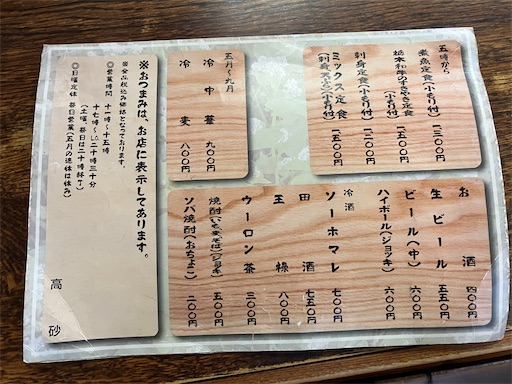 五時から
煮魚定食(小もり付) 一三〇〇円
栃木和牛のすきやき定食(小もり付) 一五〇〇円
刺身定食(小もり付) 一二〇〇円
ミックス定食(刺身、天ぷら)(小もり付) 一五〇〇円
五月〜九月
冷中華 九〇〇円
冷麦 八〇〇円
お酒 四〇〇円
生ビール 五五〇円
ビール(中) 六〇〇円
ハイボール(ジョッキ) 六〇〇円
冷酒
ソーホマレ 七〇〇円
田酒 七五〇円
王祿 八〇〇円
ウーロン茶 三〇〇円
焼酎(いも、麦、そば)(ジョッキ) 五〇〇円
ソバ焼酎(おちょこ) 二〇〇円
※おつまみは、お店に表示してあります。
※全品税込み価格となっております。
◎営業時間 十一時〜十五時
十七時〜二十時三十分
(土曜、祭日は二十時終了)
◎日曜定休 祭日営業(五月の連休は休み)
高砂